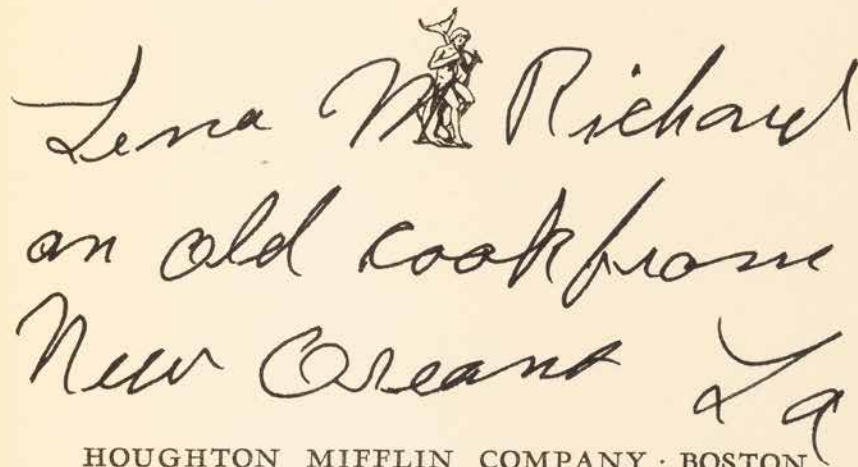 Lena M Richard
an old cook from
New Oreans La
HOUGHTON MIFFLIN COMPANY · BOSTON